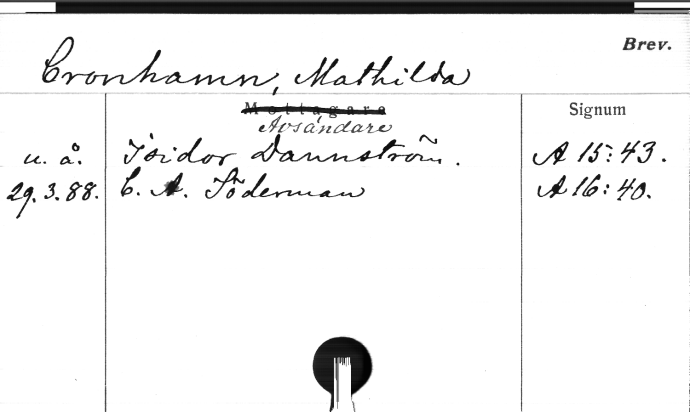 Brev.
Cronhamn, Mathilda
Mottagare Signum
Avsändare
u. å. Isidor Dannström. A 15:43.
29.3.88. C. A. Söderman A 16:40.